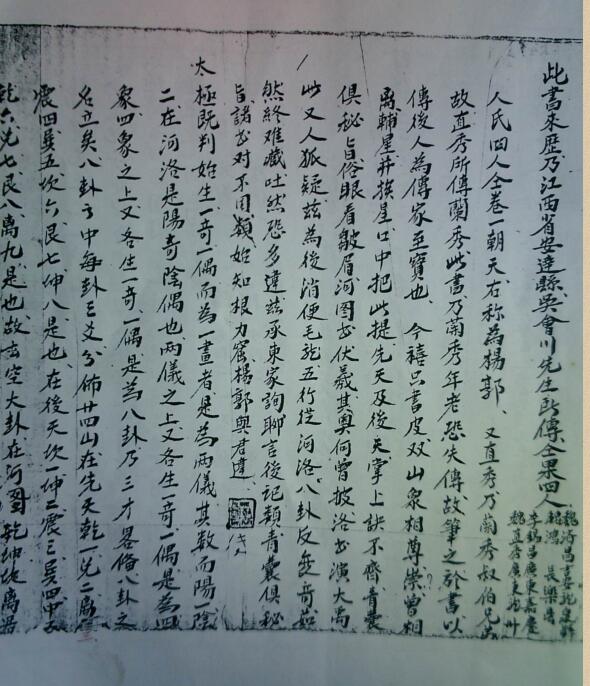 此書來歷乃江西省安達縣吳會川先生所傳全果四人
人氏四人全卷一朝天右称為楊郭、又直秀乃蘭秀叔伯兄弟
故直秀所傳蘭秀此書乃蘭秀年老恐失傳故筆之於書以
傳後人為傳家至寶也、今禧只書皮双山衆相尊崇曾相
輔星井挨星口中把此提先天及後天掌上訣不齊青囊
俱秘旨俗眼看皺眉河图书伏羲其奥何曾披洛书演大禹
此又人狐疑茲為後消便毛施五行從河洛八卦反變奇茹
然終难藏吐然恐多違茲承東家詢聊言後記類青囊俱秘
旨諸书对不同類始知根力窩楊郭與君違
太極既判始生一奇一偶而為一畫者是為两儀其数而陽一陰
二在河洛是陽奇陰偶也两儀之上又各生一奇一偶是為四
象四象之上又各生一奇、一偶是為八卦乃三才畧俻八卦之
名立矣八卦之中每卦三爻分佈廿四山在先天乾一兑二离
震四巽五坎六艮七坤八是也、在後天坎一坤二震三巽四中五
乾六兑七艮八离九是也故玄空大卦在河圖乾坤坎离居